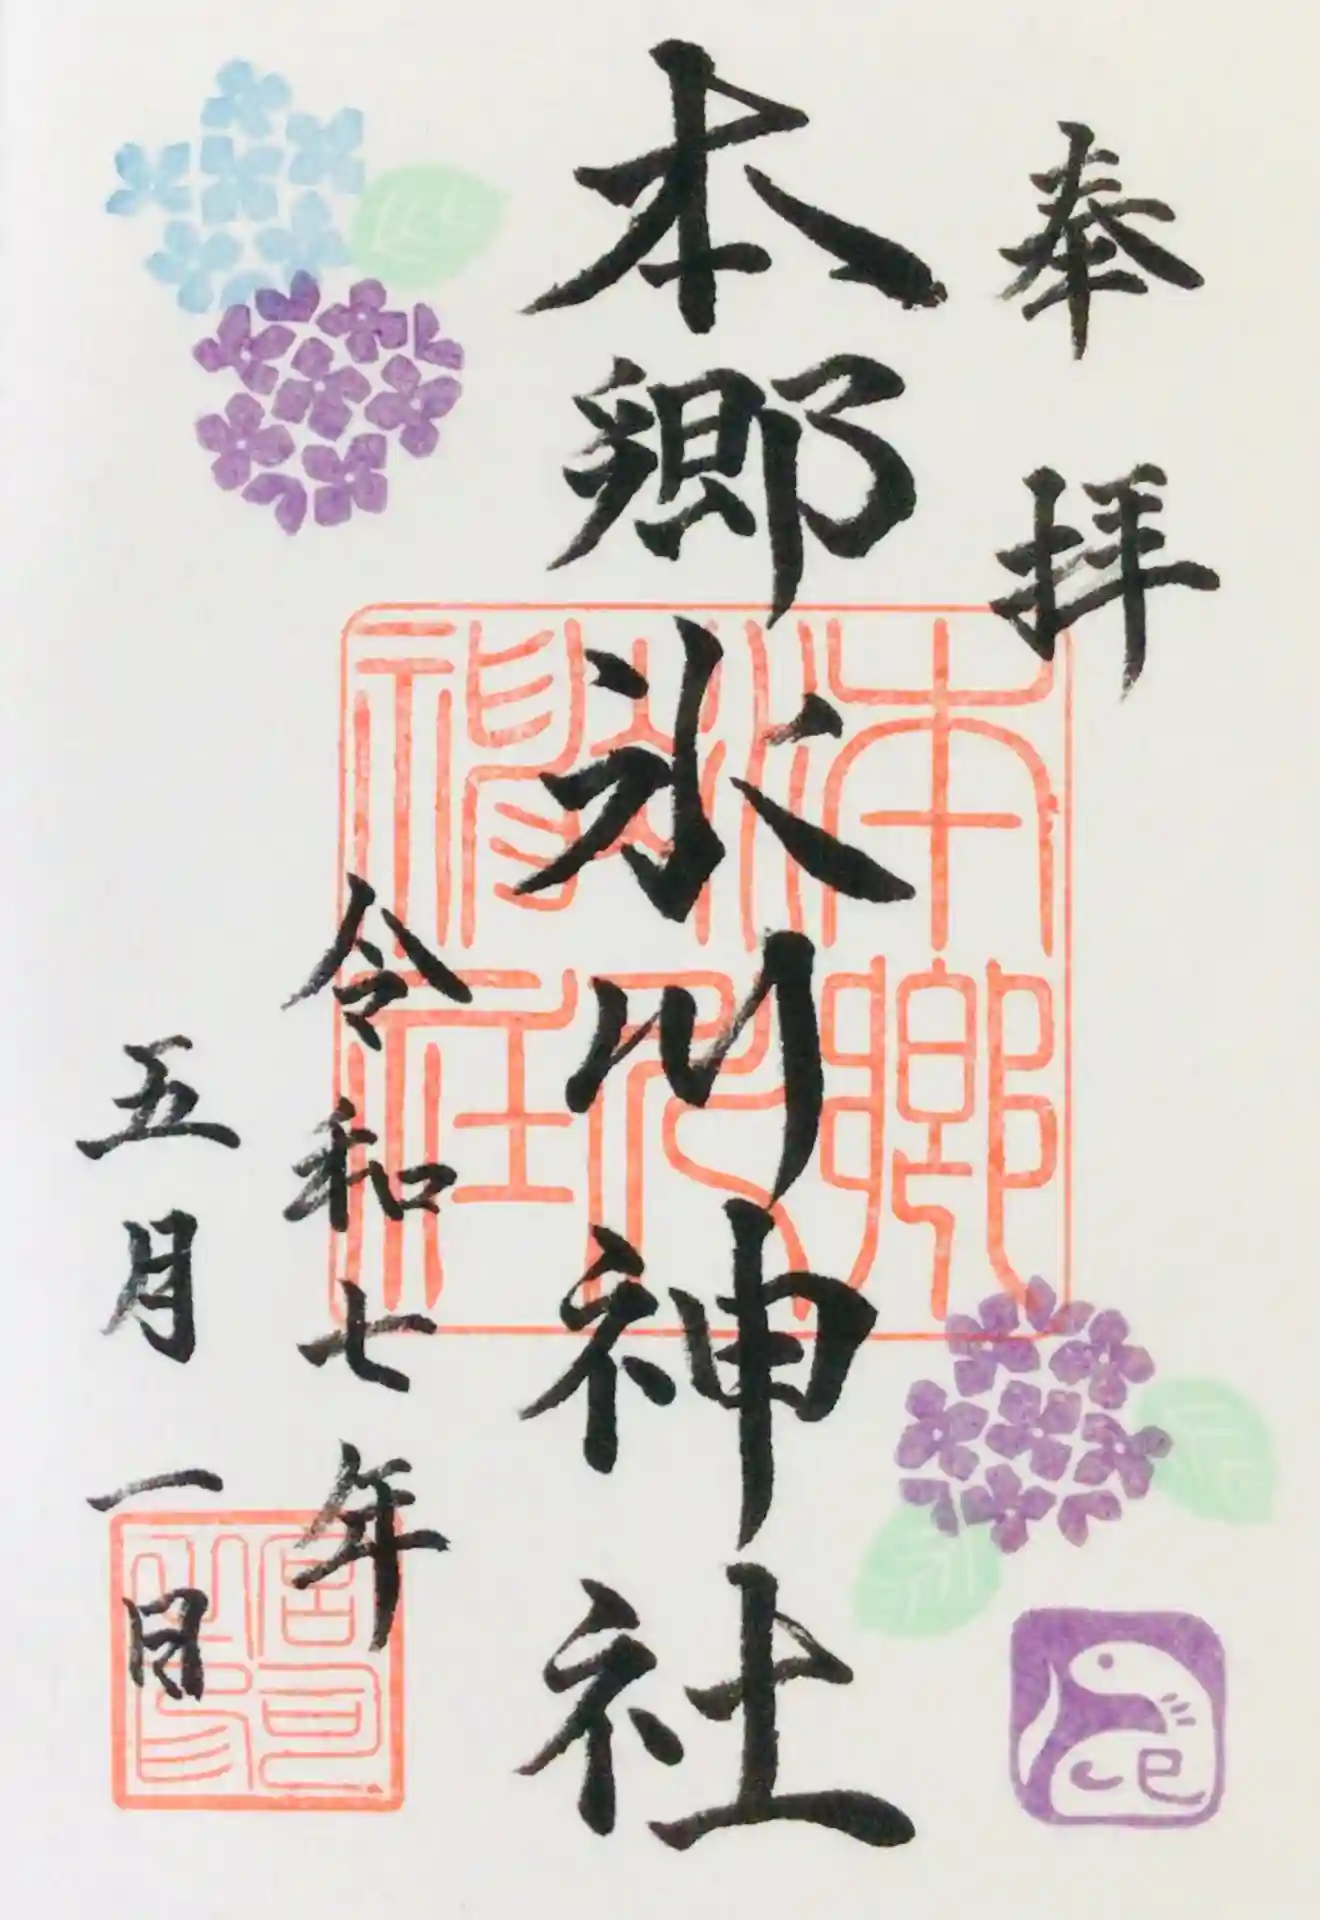 奉拝
本郷氷川神社
令和七年
五月一日
本郷
氷川
神社
巳